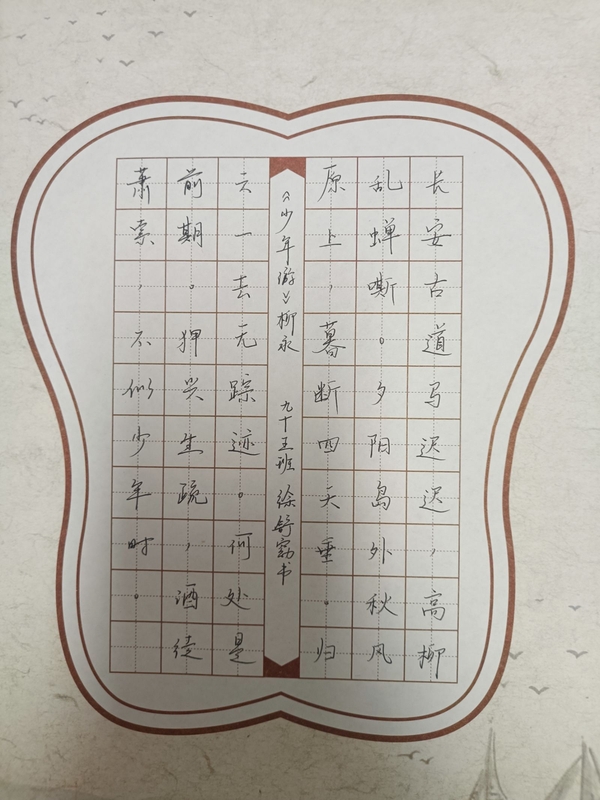 长安古道马迟迟，高柳
乱蝉嘶。夕阳岛外秋风
原上，暮断四天垂。归
《少年游》柳永 九十五班 徐舒窈书
云一去无踪迹。何处是
前期。狎兴生疏，酒徒
萧索，不似少年时。